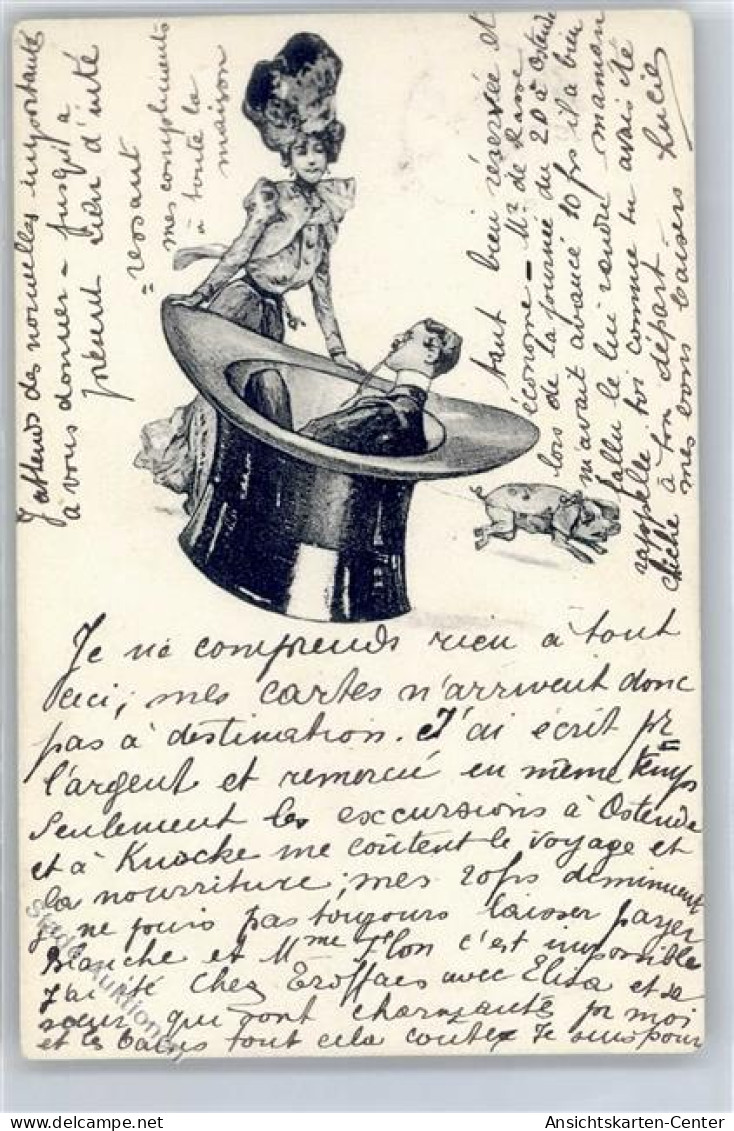 Je ne comprends rien à tout
ceci; mes cartes n'arrivent donc
pas à destination. J'ai écrit pr
l'argent et remercié en même temps
Seulement les excursions à Ostende
et à Knocke me coûtent le voyage et
la nourriture; mes 20frs diminuent
je ne puis pas toujours laisser payer
Blanche et Mme Flon c'est impossible
J'ai été chez Eroffaes avec Elisa et sa
sœur qui sont charmante pr moi
et les bains tout cela coute Je suis pour
tant bien réservée et
économe - Mr de Rasse
lors de la journée du 20 à Ostende
m'avait avancé 10 frs il a bien
fallu le lui rendre maman
rappelle toi comme tu avais été
chiche à ton départ.
mes bons baisers Lucie
J'attends des nouvelles importantes
à vous donner - jusqu'à
présent rien d'inté
=ressant
mes compliments
à toute la
maison
Auktionen
Ansichtskarten-Center